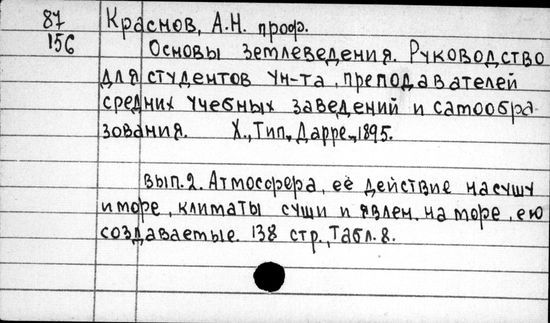 87 Краснов, А.Н. проф.
156 Основы землеведения. Руководство
для студентов ун-та, преподавателей
средних учебных заведений и самообра
зования. Х., Тип. Дарре, 1895.
вып. 2. Атмосфера, её действие на сушу
и море, климаты суши и явлен. на море, ею
создаваемые. 138 стр., Табл. 8.